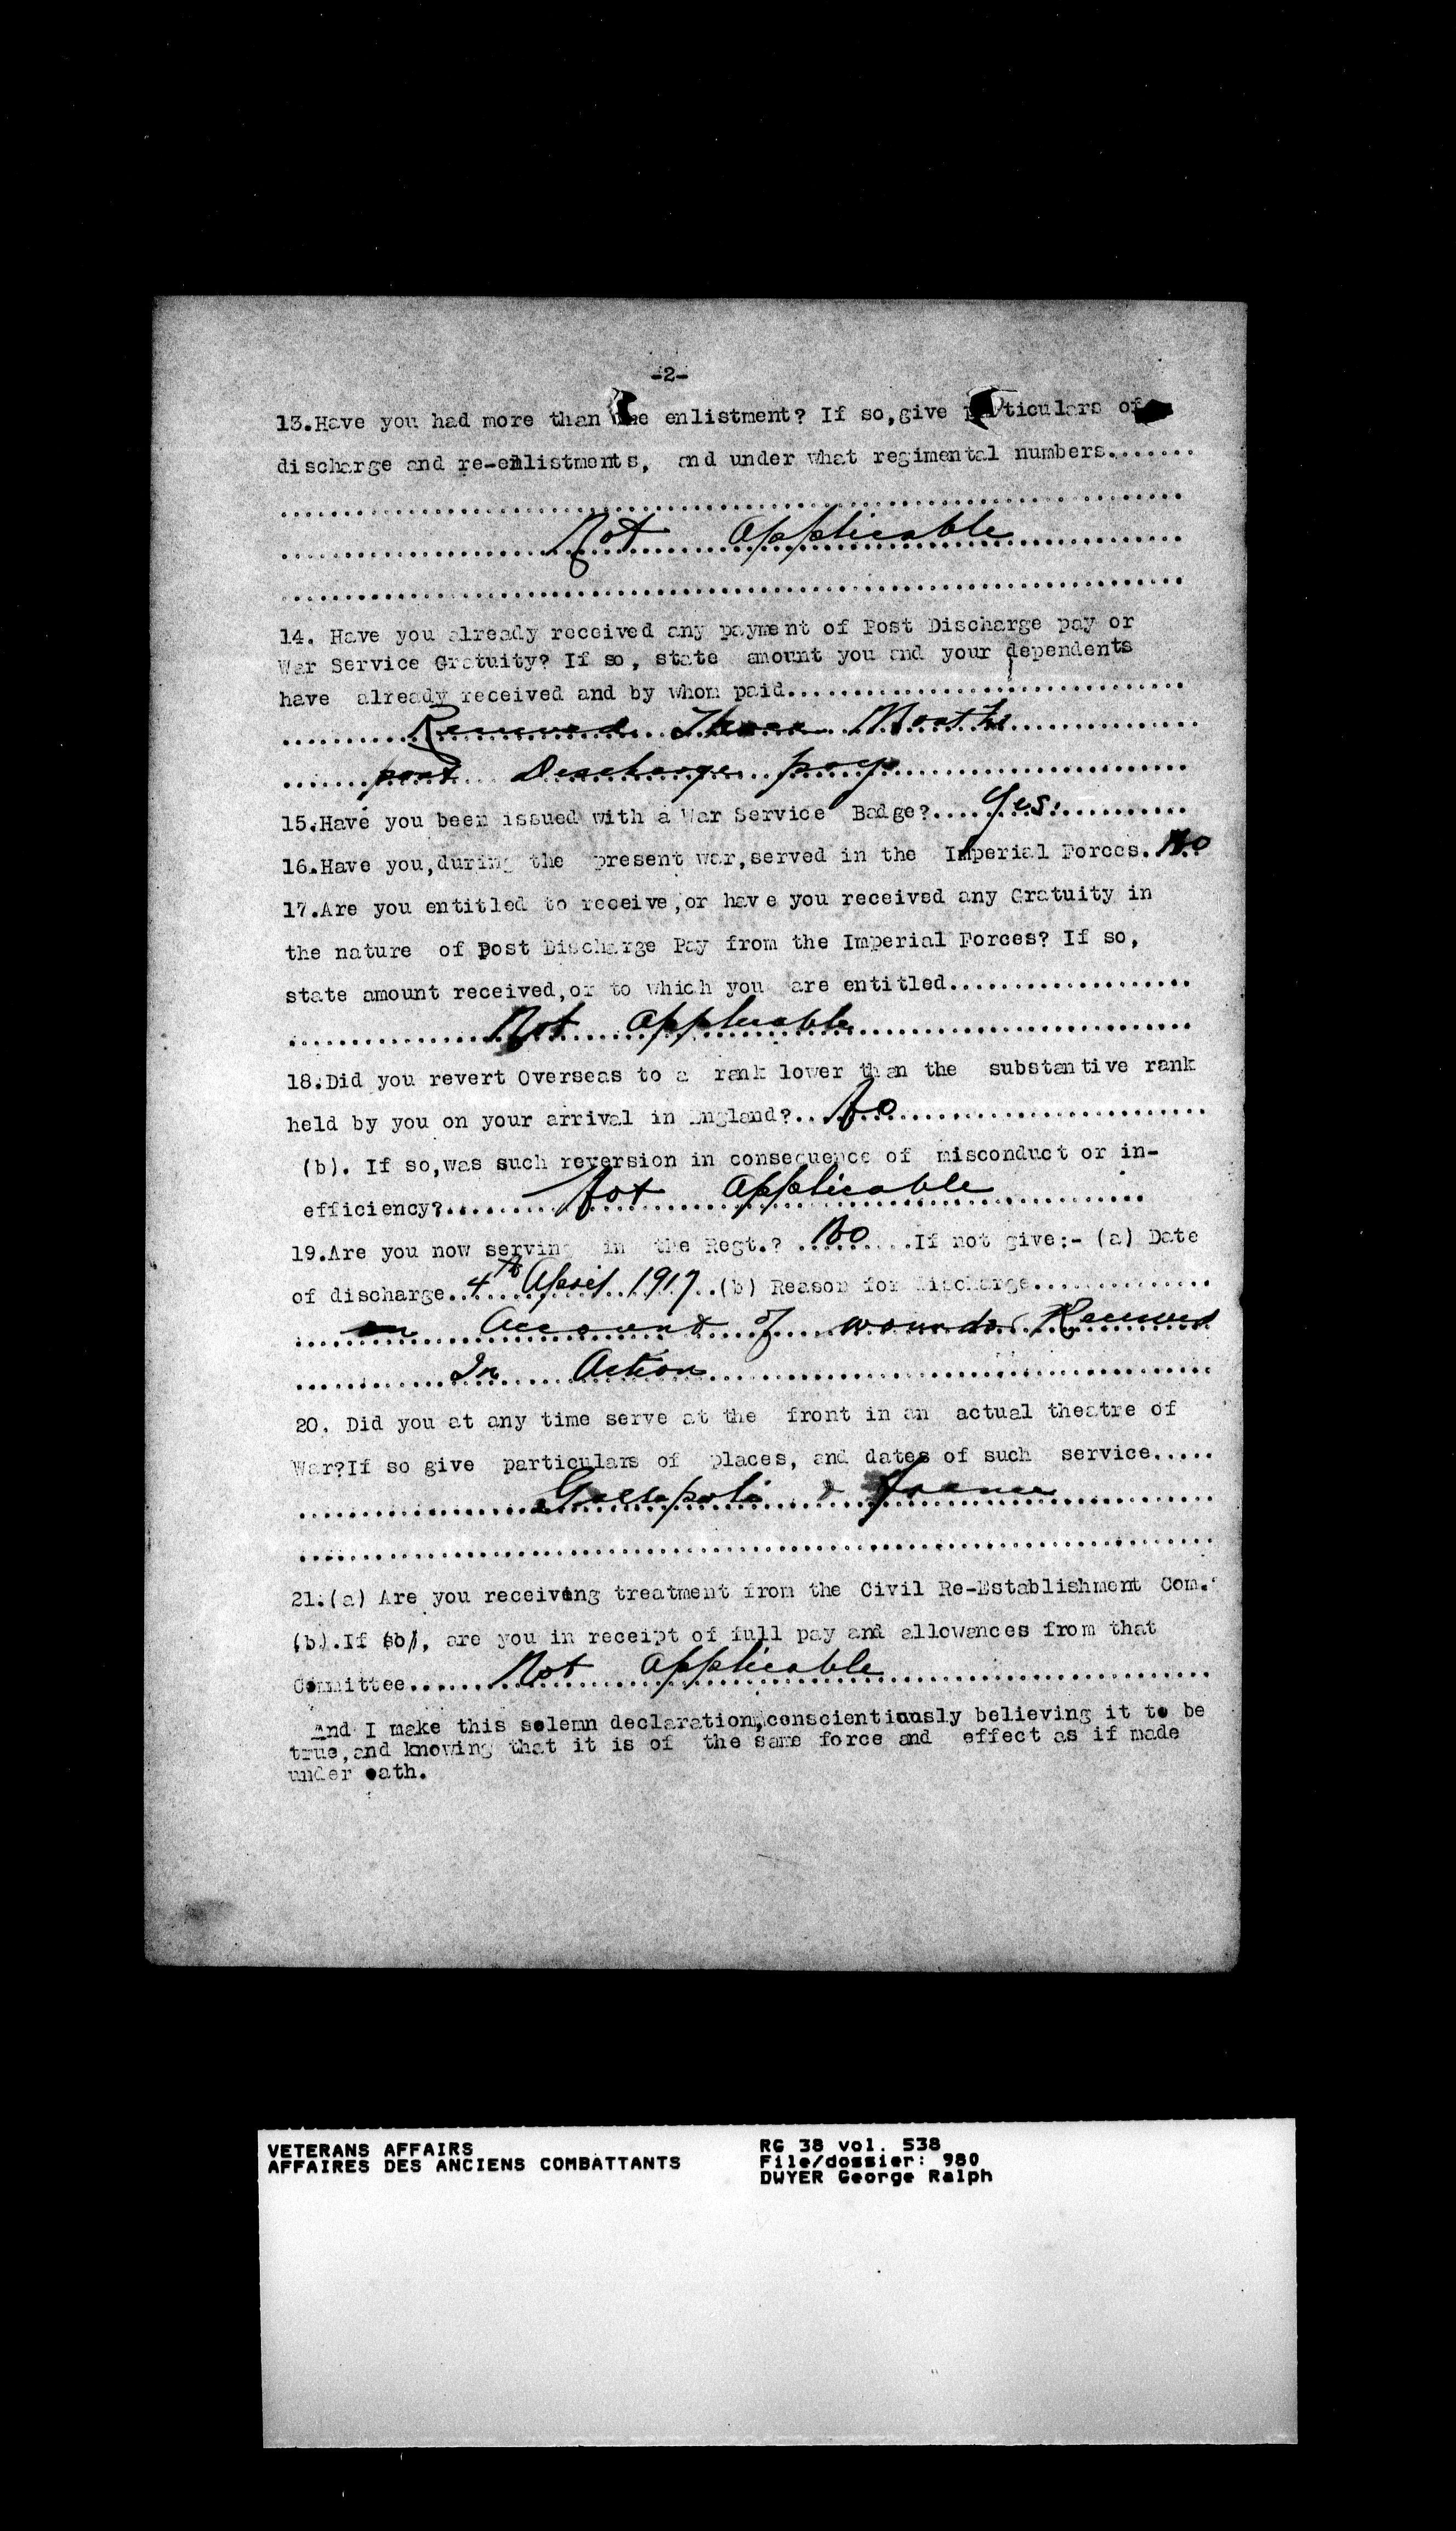 -2-
13.Have you had more than one enlistment? If so,give particulars of
discharge and re-enlistments, and under what regimental numbers.......
Not applicable
14. Have you already received any payment of Post Discharge pay or
War Service Gratuity? If so, state amount you and your dependents
have already received and by whom paid................................
Received Three Months
post Discharge pay
15.Have you been issued with a War Service Badge?....Yes...........
16.Have you,during the present war,served in the Imperial Forces. No
17.Are you entitled to receive,or have you received any Gratuity in
the nature of Post Discharge Pay from the Imperial Forces? If so,
state amount received,or to which you are entitled...................
Not applicable
18.Did you revert Overseas to a rank lower than the substantive rank
held by you on your arrival in England?...No........................
(b). If so,was such reversion in consequence of misconduct or in-
efficiency?........Not applicable............
19.Are you now serving in the Regt.? ..No......If not give:- (a) Date
of discharge..4th April 1917..(b) Reason for discharge..............
on Account of wounds Received
In Action
20. Did you at any time serve at the front in an actual theatre of
War?If so give particulars of places, and dates of such service.....
Gallapoli & France
21.(a) Are you receiving treatment from the Civil Re-Establishment Com.
(b).If so, are you in receipt of full pay and allowances from that
Committee.......Not applicable.........................
And I make this solemn declaration,conscientiously believing it to be
true,and knowing that it is of the same force and effect as if made
under oath.
VETERANS AFFAIRS
AFFAIRES DES ANCIENS COMBATTANTS
RG 38 vol. 538
File/dossier: 980
DWYER George Ralph